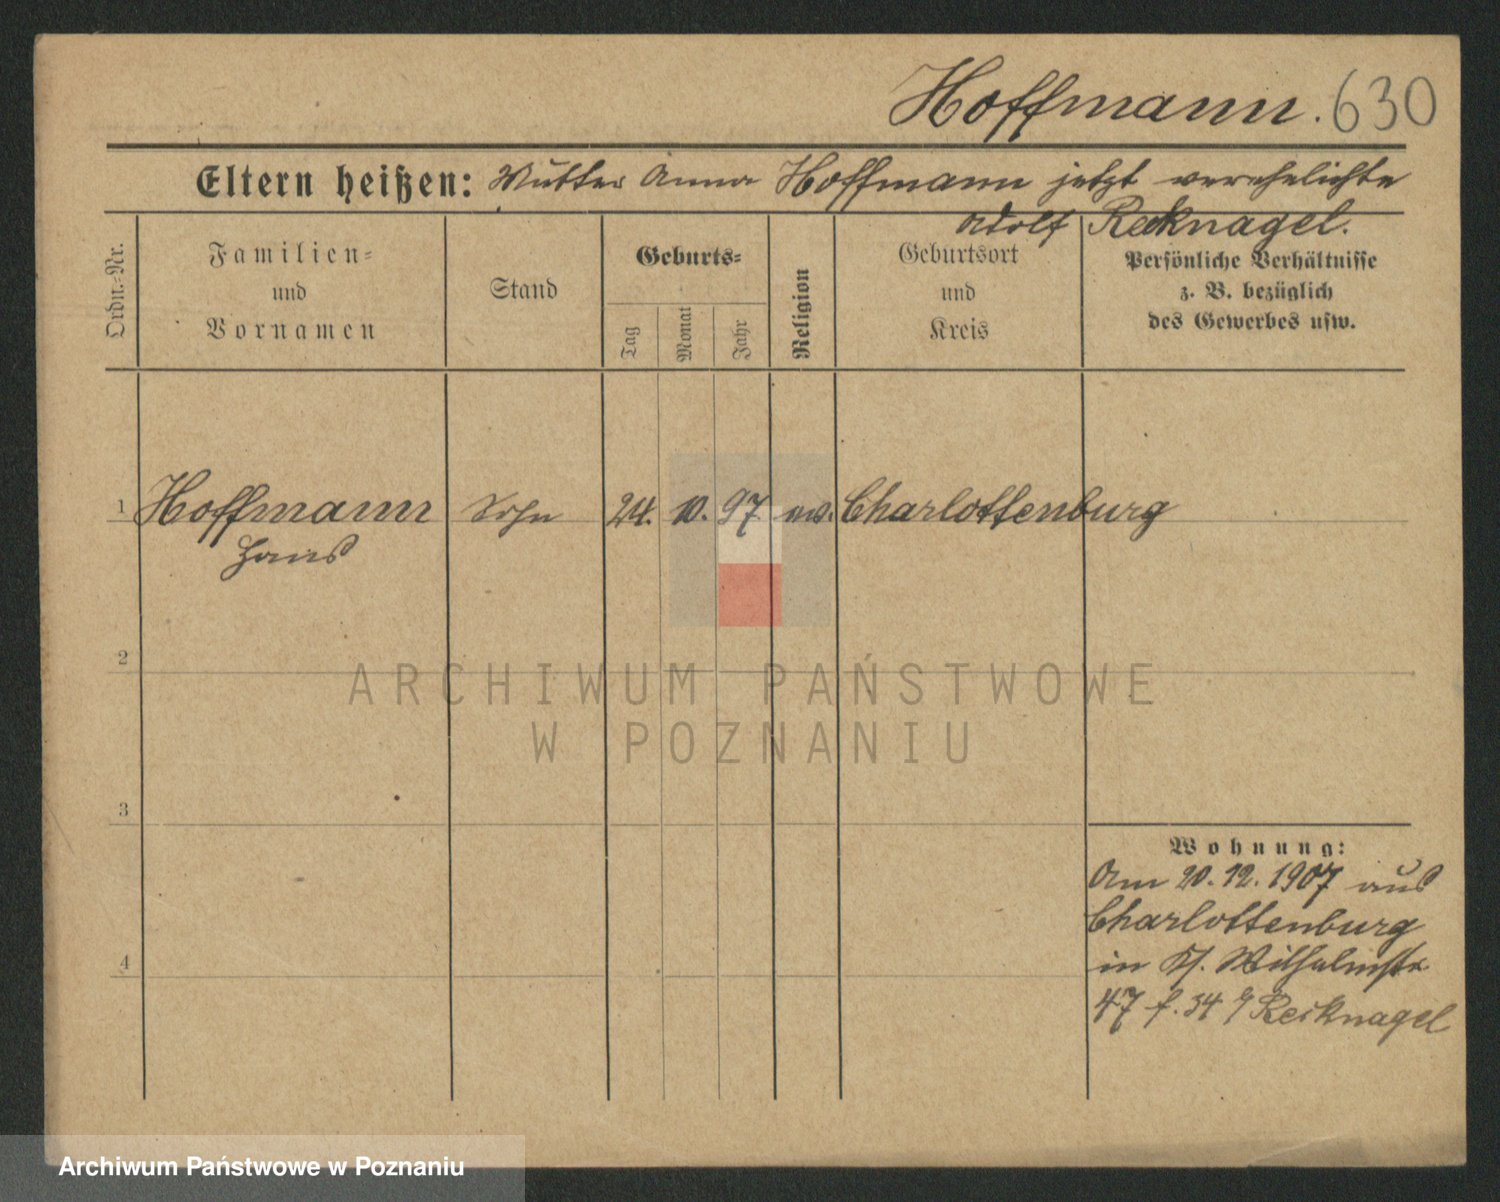 Hoffmann. 630
Eltern heißen: Mutter Anna Hoffmann jetzt verehelichte
Adolf Recknagel.
Ordn.-Nr.
Familien-
und
Vornamen
Stand
Geburts-
Tag
Monat
Jahr
Religion
Geburtsort
und
Kreis
Persönliche Verhältnisse
z. B. bezüglich
des Gewerbes usw.
1 Hoffmann Sohn 24. 10. 97 ev. Charlottenburg
Hans
2
ARCHIWUM PAŃSTWOWE
W POZNANIU
3
Wohnung:
Am 20.12.1907 aus
Charlottenburg
4
in Wilhelmstr.
47 34 Recknagel
Archiwum Państwowe w Poznaniu